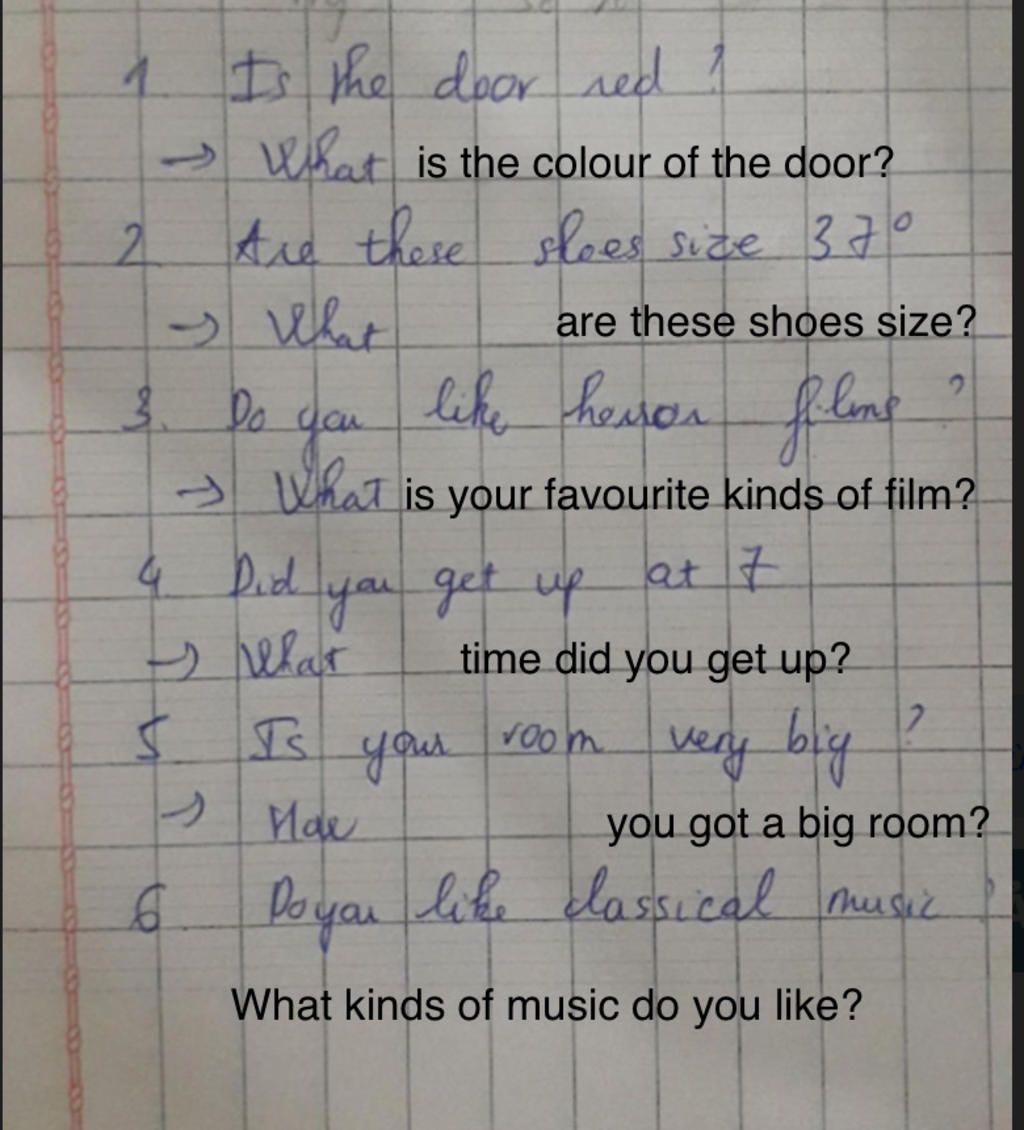 1 Is the door red ?
→ What is the colour of the door?
2 Are these shoes size 37°
→ What are these shoes size?
3. Do you like horror films ?
→ What is your favourite kinds of film?
4 Did you get up at 7
→ What time did you get up?
5 Is your room very big ?
→ you got a big room?
6 Do you like classical music ?
What kinds of music do you like?